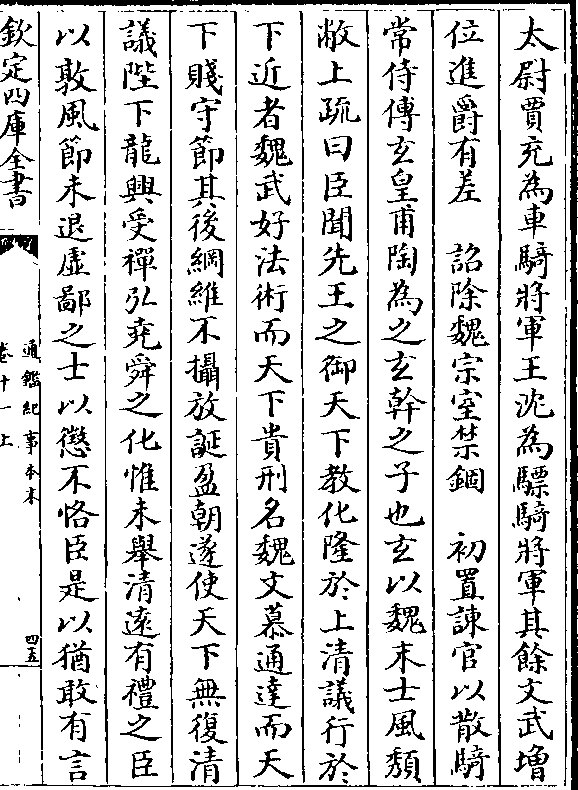 太尉賈充為車騎將軍王沈為驃騎將軍其餘文武增
位進爵有差　詔除魏宗室禁錮　初置諫官以散騎
常侍傅玄皇甫陶為之玄幹之子也玄以魏末士風頹
敝上疏曰臣聞先王之御天下教化隆於上清議行於
下近者魏武好法術而天下貴刑名魏文慕通達而天
下賤守節其後綱維不攝放誕盈朝遂使天下無復清
議陛下龍興受禪弘堯舜之化惟未舉清遠有禮之臣
以敦風節未退虛鄙之士以懲不恪臣是以猶敢有言
欽定四庫全書
通鑑紀事本末
卷十一上
四五